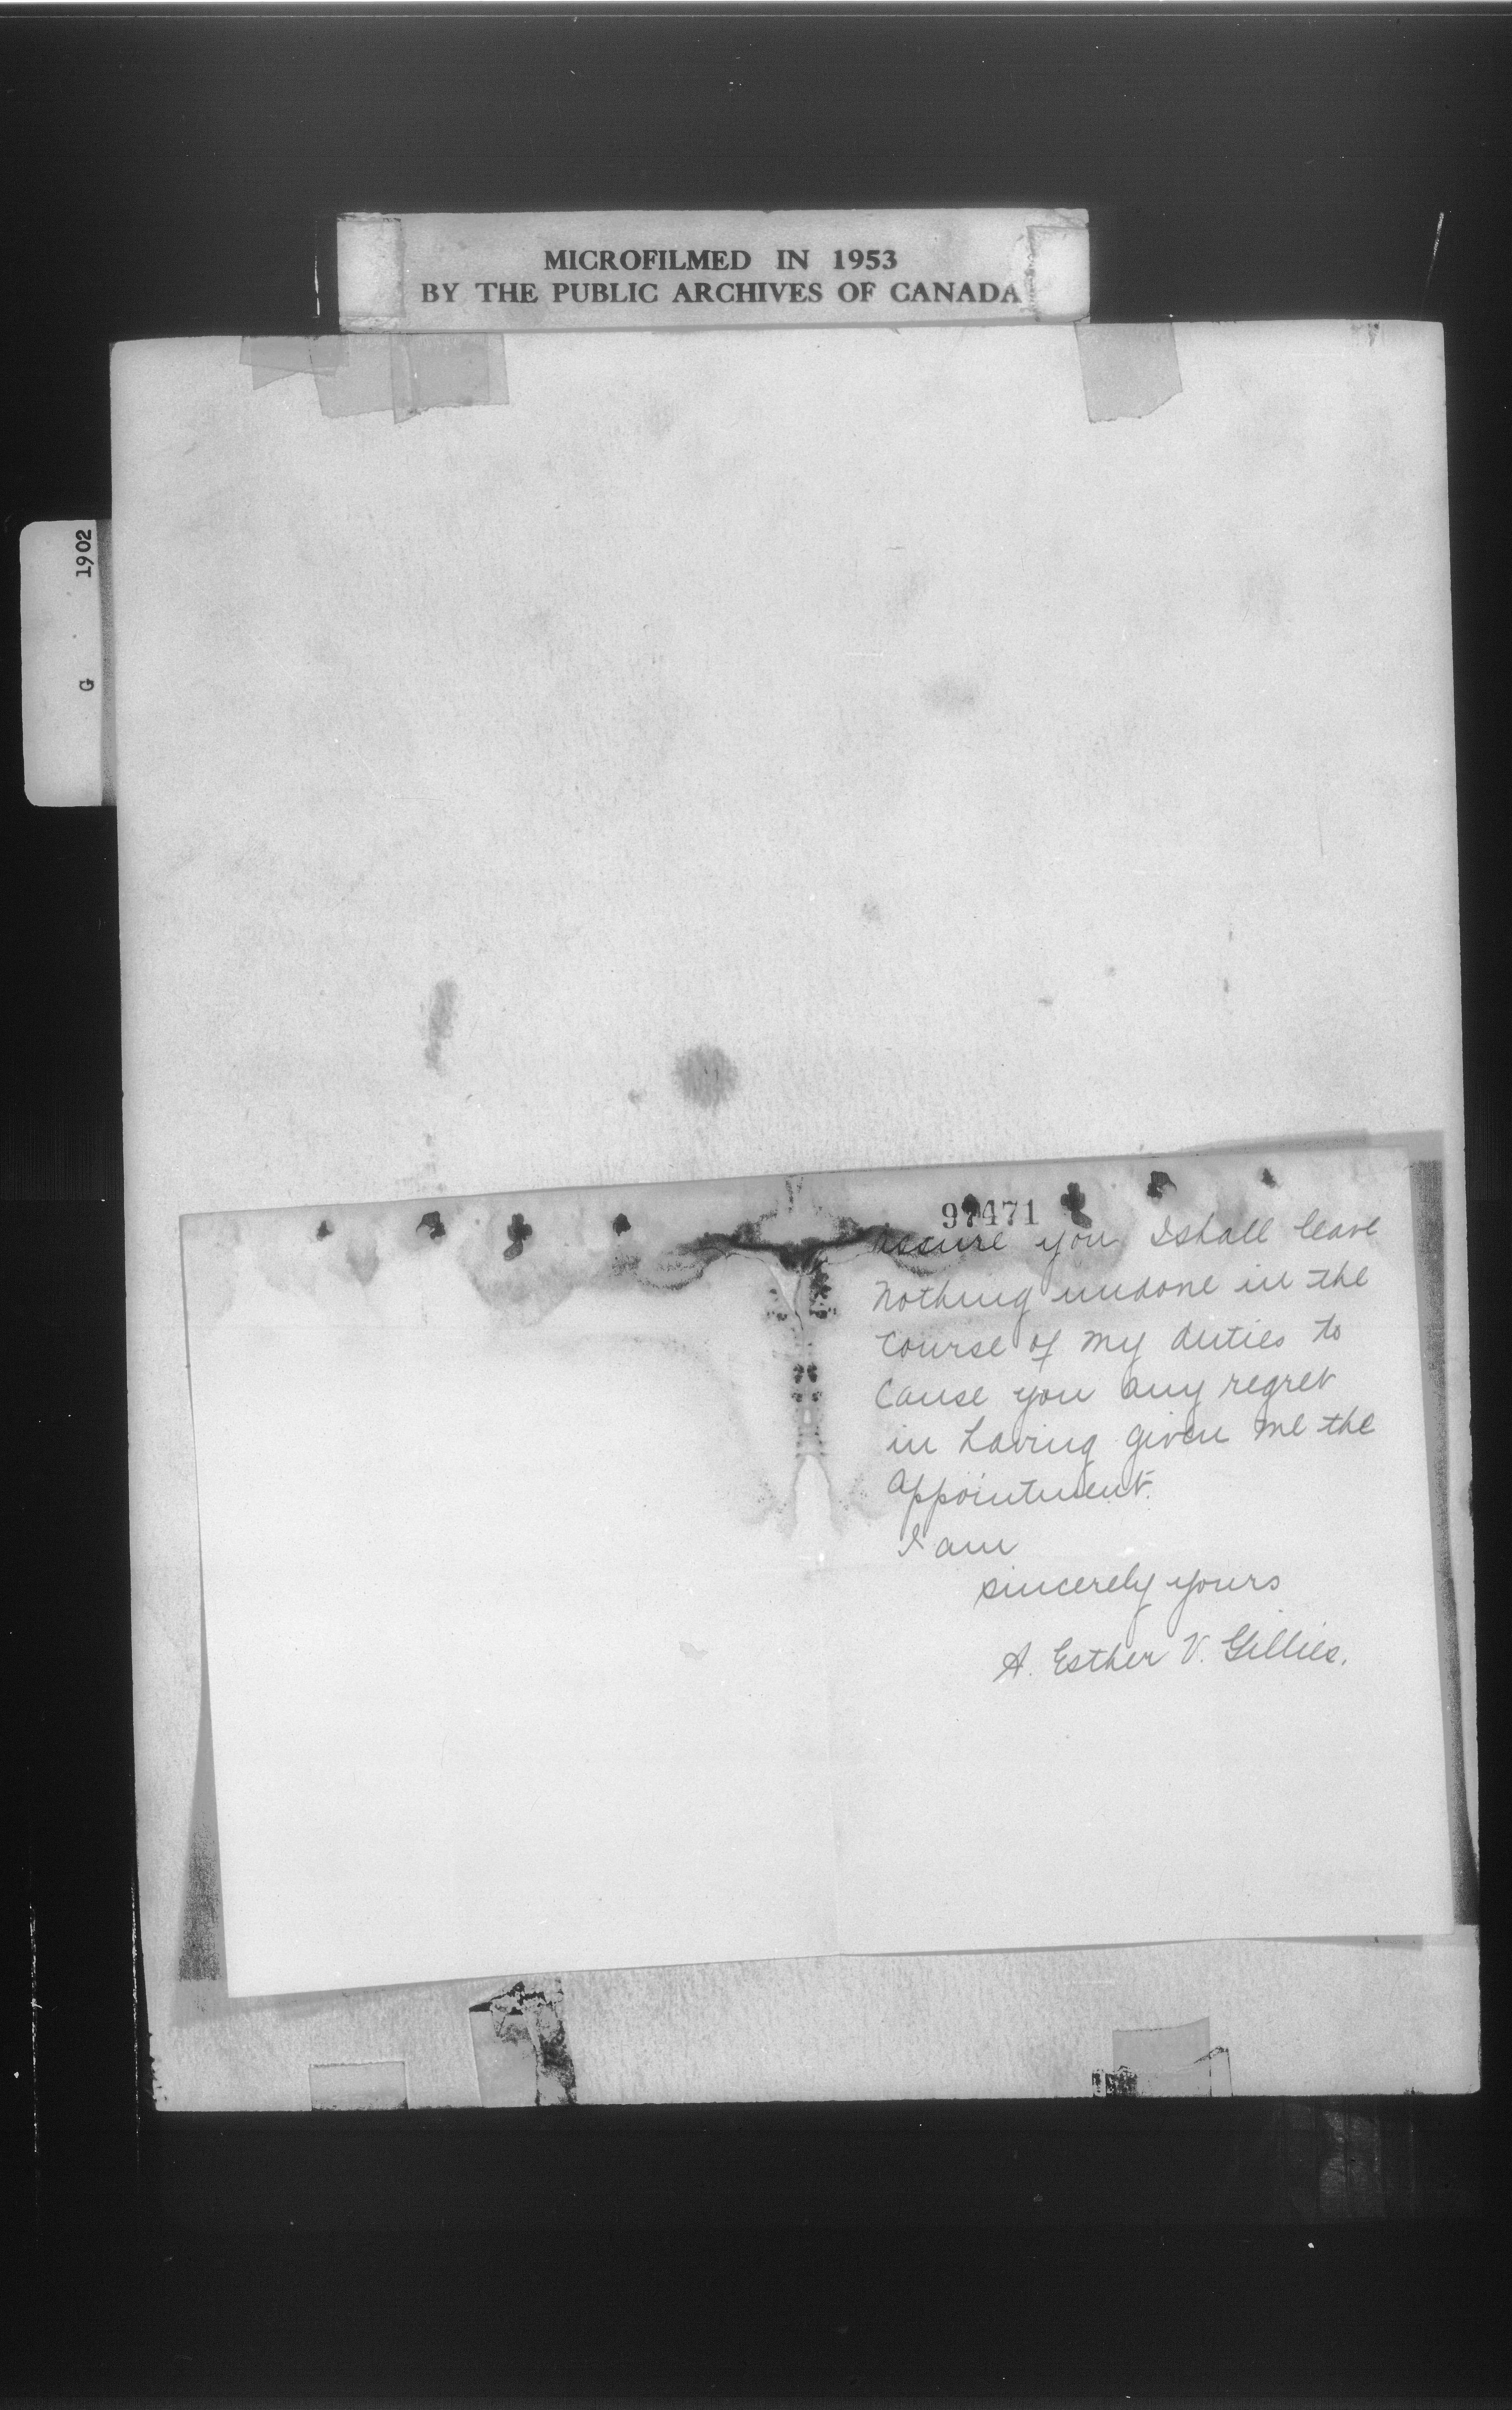 MICROFILMED IN 1953
BY THE PUBLIC ARCHIVES OF CANADA
1902
G
97471
assure you I shall leave
nothing undone in the
course of my duties to
cause you any regret
in having given me the
appointment.
I am
sincerely yours
A. Esther V. Gillies.